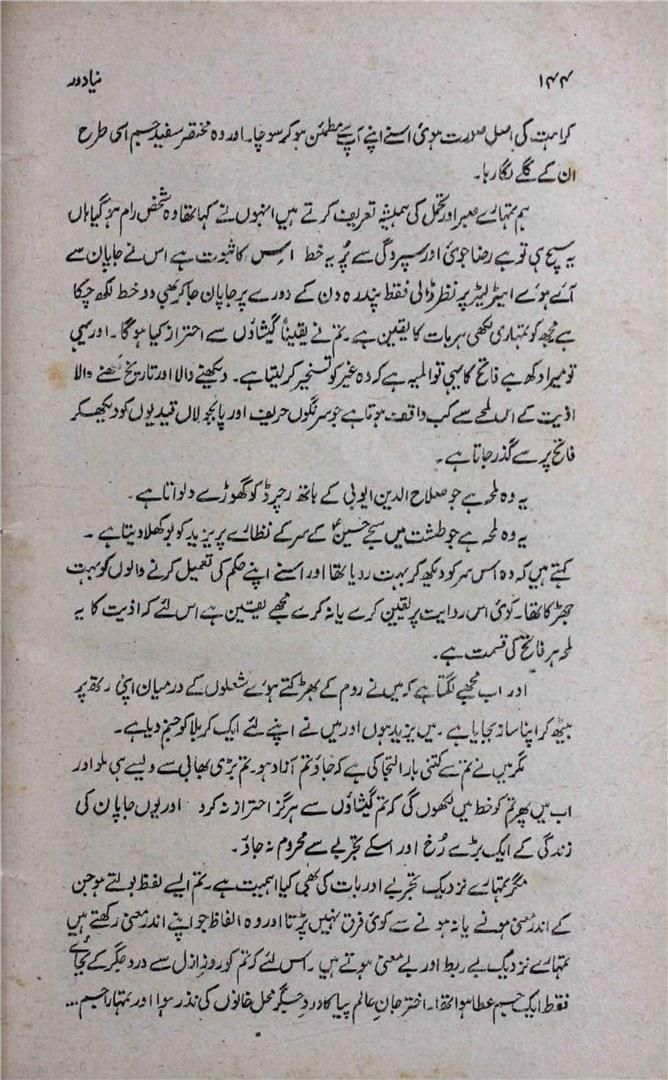 ۱۴۴
نیا دور
کراہت کی اصل صورت ہوئی اسنے اپنے آپ سے مطمئن ہو کر سوچا۔ اور وہ مختصر سفید جسم اسی طرح
ان کے گلے لگا رہا۔
ہم تمہارے صبر اور تحمل کی ہمیشہ تعریف کرتے ہیں انہوں نے کہا تھا وہ شخص رام ہو گیا ہاں
یہ سچ ہی تو ہے رضا جوئی اور سپردگی سے پُر یہ خط اس کا ثبوت ہے اس نے جاپان سے
آئے ہوئے ایئر لیٹر پر نظر ڈالی فقط پندرہ دن کے دورے پر جاپان جا کر بھی دو خط لکھ چکا
ہے مجھ کو تمہاری لکھی ہر بات کا یقین ہے۔ تم نے یقیناً گیشاؤں سے احتراز کیا ہو گا۔ اور یہی
تو میرا دکھ ہے فاتح کا یہی تو المیہ ہے کہ وہ غیر کو تسخیر کر لیتا ہے۔ دیکھنے والا اور تاریخ لکھنے والا
اذیت کے اس لمحے سے کب واقف ہوتا ہے جو سرنگوں حریف اور پابجولاں قیدیوں کو دیکھکر
فاتح پر سے گذر جاتا ہے۔
یہ وہ لمحہ ہے جو صلاح الدین ایوبی کے ہاتھ رچرڈ کو گھوڑے دلواتا ہے۔
یہ وہ لمحہ ہے جو طشت میں سجے حسینؑ کے سر کے نظارے پر یزید کو بوکھلا دیتا ہے۔
کہتے ہیں کہ وہ اس سر کو دیکھ کر بہت رویا تھا اور اسنے اپنے حکم کی تعمیل کرنے والوں کو بہت
جھڑکا تھا۔ کوئی اس روایت پر یقین کرے یا نہ کرے مجھے یقین ہے اس لئے کہ اذیت کا یہ
لمحہ ہر فاتح کی قسمت ہے۔
اور اب مجھے لگتا ہے کہ میں نے روم کے بھڑکتے ہوئے شعلوں کے درمیان اپنی رتھ پر
بیٹھ کر اپنا ساز بجایا ہے۔ میں یزید ہوں اور میں نے اپنے لئے ایک کربلا کو جنم دیا ہے۔
مگر میں نے تم سے کتنی بار التجا کی ہے کہ جاؤ تم آزاد ہو۔ تم بڑی بھابی سے ویسے ہی ملو اور
اب میں پھر تم کو خط میں لکھوں گی کہ تم گیشاؤں سے ہرگز احتراز نہ کرو اور یوں جاپان کی
زندگی کے ایک بڑے رُخ اور اسکے تجربے سے محروم نہ جاؤ۔
مگر تمہارے نزدیک تجربے اور بات کی بھی کیا اہمیت ہے۔ تم ایسے لفظ بولتے ہو جن
کے اندر معنی ہونے یا نہ ہونے سے کوئی فرق نہیں پڑتا اور وہ الفاظ جو اپنے اندر معنی رکھتے ہیں
تمہارے نزدیک بے ربط اور بے معنی ہوتے ہیں۔ اس لئے کہ تم کو روزِ ازل سے دردِ جگر کے بجائے
فقط ایک جسم عطا ہوا تھا۔ اختر جانِ عالم پیا کا دردِ جگر محل خانوں کی نذر ہوا اور تمہارا جسم...